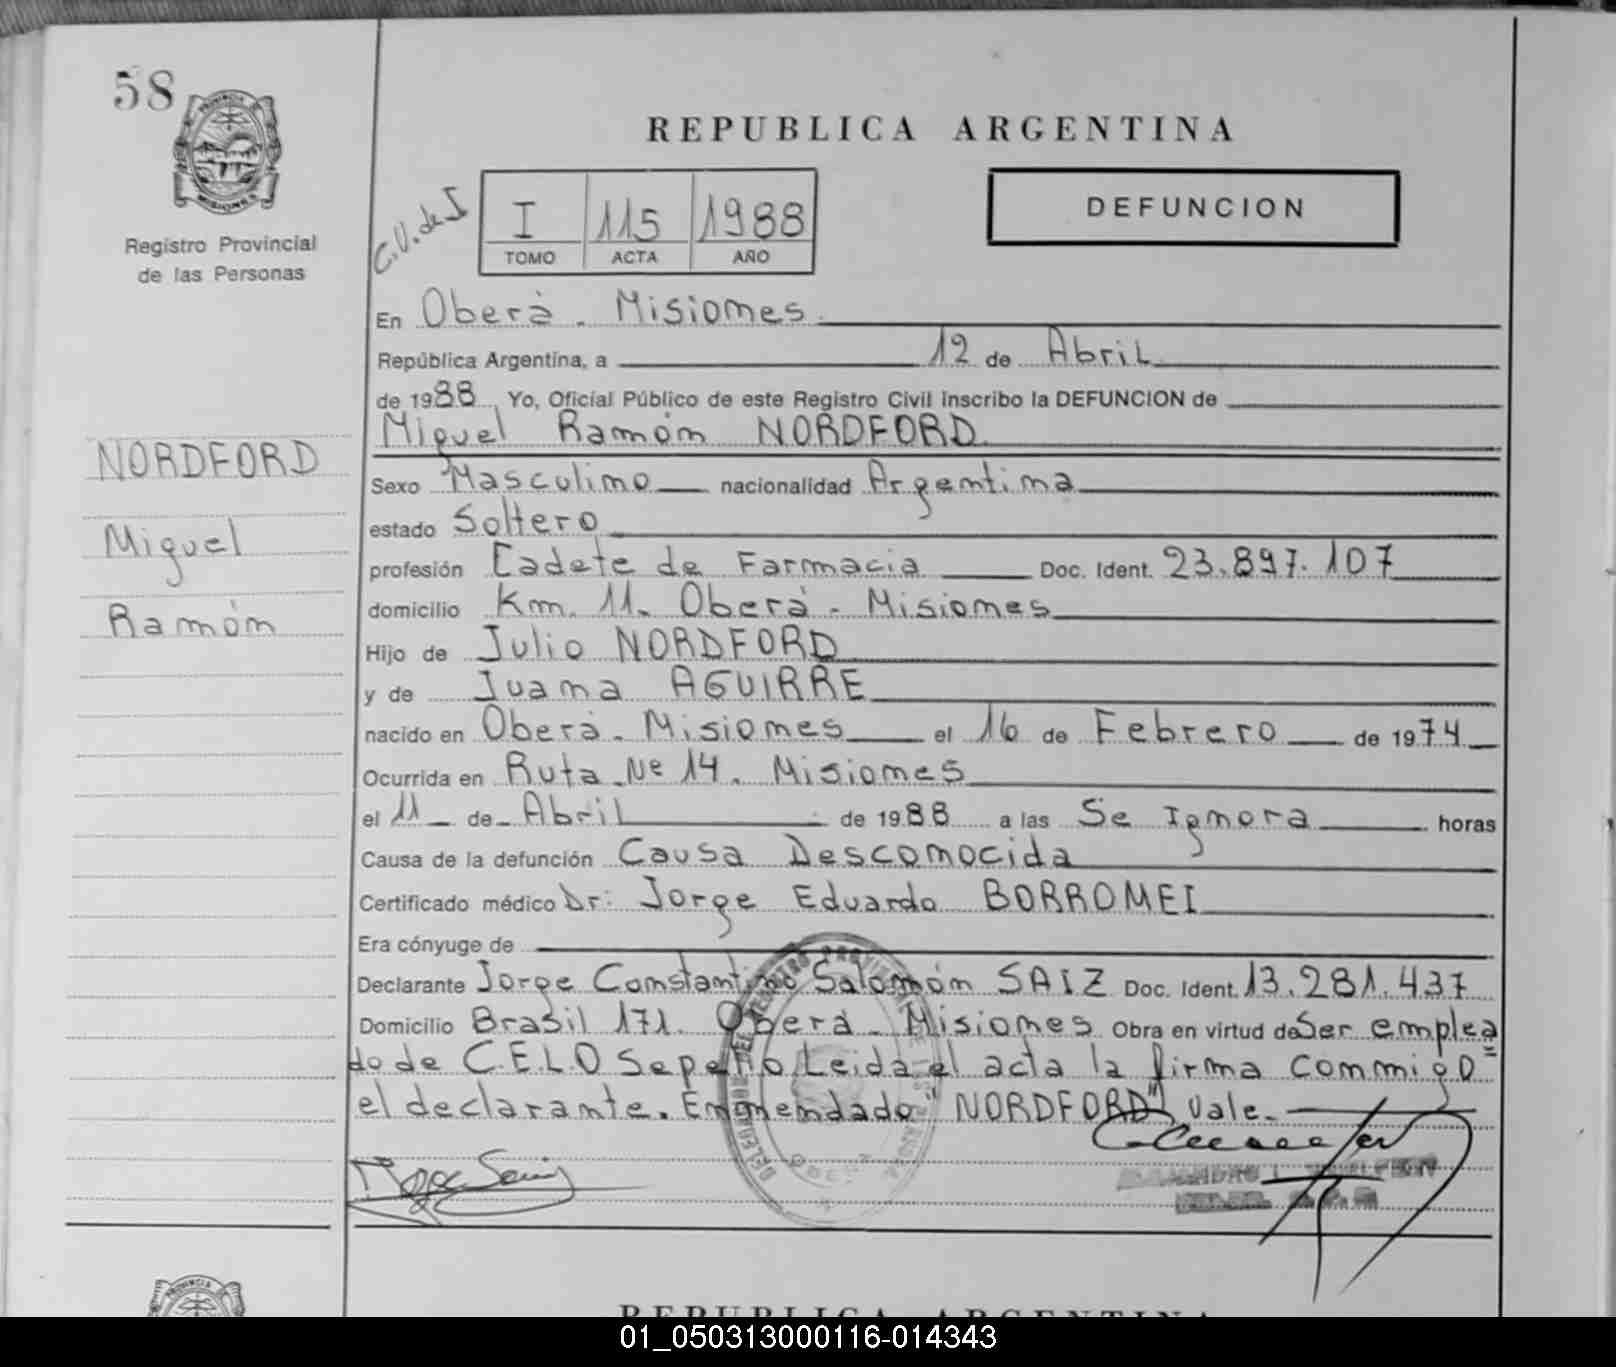 58
PROVINCIA
MISIONES
Registro Provincial
de las Personas
REPUBLICA ARGENTINA
C.V. de I
I 115 1988
TOMO ACTA AÑO
DEFUNCION
En Oberá - Misiones
República Argentina, a 12 de Abril
de 1988 Yo, Oficial Público de este Registro Civil inscribo la DEFUNCION de
Miguel Ramón NORDFORD
NORDFORD
Miguel
Ramón
Sexo Masculino nacionalidad Argentina
estado Soltero
profesión Cadete de Farmacia Doc. Ident. 23.897.107
domicilio Km. 11. Oberá - Misiones
Hijo de Julio NORDFORD
y de Juana AGUIRRE
nacido en Oberá - Misiones el 16 de Febrero de 1974
Ocurrida en Ruta Nº 14. Misiones
el 11 de Abril de 1988 a las Se Ignora horas
Causa de la defunción Causa Desconocida
Certificado médico Dr: Jorge Eduardo BORROMEI
Era cónyuge de
Declarante Jorge Constantino Salomón SAIZ Doc. Ident. 13.281.437
Domicilio Brasil 171. Oberá - Misiones Obra en virtud de Ser emplea
do de C.E.L.O Sepelio Leida el acta la firma conmigo=
el declarante. Enmendado "NORDFORD" Vale.
PROVINCIA
REPUBLICA ARGENTINA
01_050313000116-014343